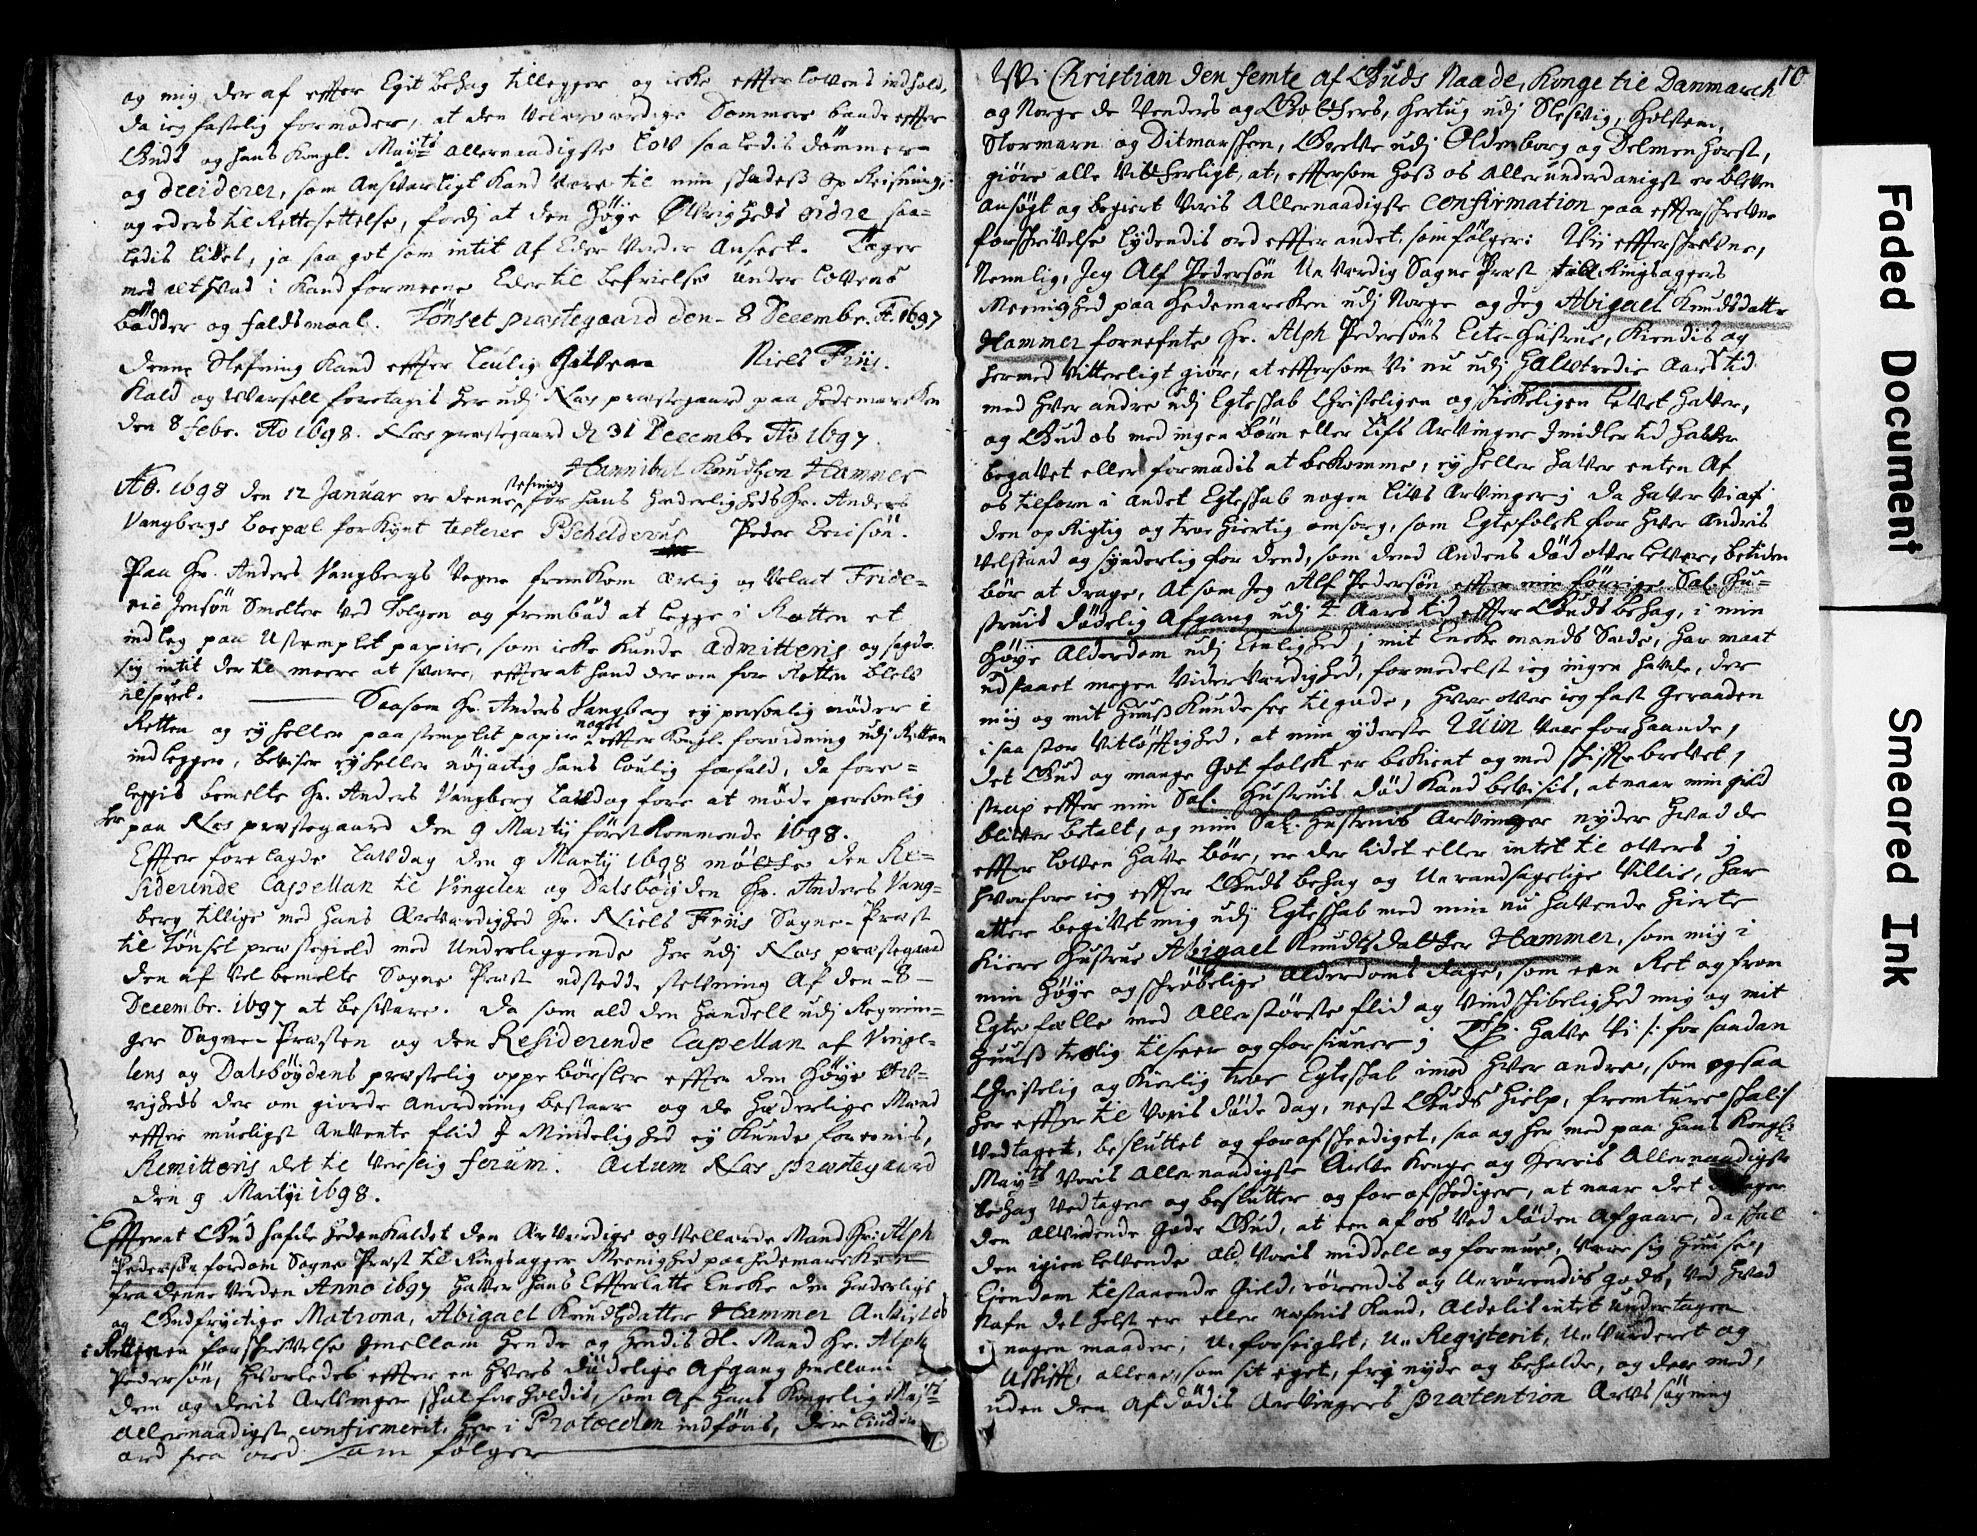 og mig der af effter Egit behag tillegger og icke effter lovens indhold,
da ieg fastelig formoder, at den Velærværdige Dommere baade effter
Guds og hans Kongl. Mayts allernaadigste Lov saaledis dömmer
og decideret, som Ansvarligt kand være til min skadeß op Reisning,
og eders til Rettesettelse, fordj at den Höge Øvrigheds ordre saa-
ledis lidet, ja saa got som intit af Eder vorder Anseet. Tager
med alt hvad i kand formeene Eder til befrielse under lovens
bødder og faldsmaal. Tönset præstegaard den 8 Decembr. Ao 1697
Niels Friis.
Denne Stefning kand effter lovlig Gifven
Kald og Warsell foretagis her udj Næs præstegaard paa Hedemarcken
den 8 Febr. Ao 1698. Næs præstegaard d 31 Decembr Ao 1697.
Hannibal Knudtzon Hammer
Ao. 1698 den 12 Januar er denne stefning for hans Hæderligheds Hr. Anders
Vangbergs boepæl forkynt testerer PSchelderup Peder Ericsön.
Paa Hr. Anders Vangbergs Vegne fremkom ærlig og Velact Fride-
ric Jensön Smelter ved Tolgen og frembød at legge i Retten et
indleg paa Ustemplet papir, som icke kunde admitteris og sagde
sig intit der til meere at svare, effterat hand der om for Retten blef
tilspurt. Saasom Hr. Anders Vangberg ey personlig möder i
Retten og ey heller paa stemplet papir noget effter Kongl. forordning udj Retten
indlegger, beviser ey heller nöjactig hans lovlig forfald, da fore-
leggis bemelte Hr. Anders Vangberg Lavdag fore at møde personlig
her paa Næs præstegaard den 9 Martij först kommende 1698.
Effter forelagde Lavdag den 9 Martij 1698 mødte den Re-
siderende Capellan til Vingelen og Dalsböigden Hr. Anders Vang-
berg tillige med hans Ærværdighed Hr. Niels Friis Sogne-Præst
til Tönset præstegield med Underliggende her udj Næs præstegaard
den af Vel bemelte Sogne Præst udstedde stefning Af den 8
Decembr. 1697 at besvare. Da som ald den handell udj Regnin-
ger Sogne-Præsten og den Residerende Capellan af Vingl-
lens og Dalsböydens præstelig oppebörsler effter den Höye Öv-
righeds der om giorde Anordning bestaar og de hæderlige Mænd
effter mueligst anvente flid I Mindelighed ey kunde foreenis,
Remitteris det til Verslig forum. Actum Næs præstegaard
den 9 Martij 1698.
Effterat Gud hafde hedenkaldet den Ærværdige og Vellærde Mand Hr: Alph
Pedersön fordom Sogne Præst til Ringsager Meenighed paa Hedemarcken
fra denne Verden Anno 1697 hafver hans Effterlatte Encke den Hæderlige
og Gudfrygtige Matrona, Abigael Knudtzdatter Hammer Anviist
i Retten en forskrifvelse Imellem hende og hendis Sl. Mand Hr. Alph
Pedersön, hvorledes effter en hvers Dödelige Afgang Imellem
dem og deris Arvinger skal forholdis, som af Hans Kongelig Mayts
allernaadigst confirmerit, her i Protocolen indföris, der liuder
ord fra ord som fölger
10
Wi Christian den femte af Guds Naade, Konge til Danmarck
og Norge de Venders og Gothers, Hertug udj Slesvig, Holsten,
Stormarn og Ditmarsken, Greve udj Oldenborg og Delmenhorst,
giöre alle Vitterligt, at, effterson hoß os allerunderdanigst er bleven
ansögt og begiert Voris Allernaadigste confirmation paa effterskrefne
forskrivelse lydendis ord effter andet, som fölger: Vii effterskrefne,
Nemlig, Jeg Alf Pedersön Uværdig Sogne Præst till Ringsaggers
Meenighed paa Hedemarcken udj Norge og Jeg Abigael Knudsdatter
Hammer fornefnte Hr. Alph Pedersöns Ecte-Hustrue, Kiendis og
hermed Vitterligt giör, at effterson Vi nu udj halvtredie Aars tid
med hver andre udj Egteskab Christeligen og skickeligen levet haver,
og Gud os med ingen börn eller Lifs Arvinger Imidlertid hafver
begavet eller formodis at bekomme, ey heller haver enten af
os tilforn i andet Egteskab nogen Livs Arvinger; da haver Vi af
den op Rigtig og troe hiertig omsorg, som Egtefolck for hver Andris
Velstand og synderlig for dend, som dend Andens död over lever, betiden
bör at drage, At som Jeg Alf Pedersön effter min forrige Sal. Hu-
struis dödelig Afgang udj 4 Aars tid effter Guds behag, i min
höye Alderdom udj Eenlighed, i mit Encke mands Sæde, har maat
udstaaet megen Viderværdighed, formedelst ieg ingen hafde, der
mig og mit Huuß kunde see til gode, hvor over ieg fast geraaden
i saa stor Vitlöfftighed, at min yderste Ruin Vaer forhaande,
det Gud og mange Got folck er bekient og med skifftebrevet,
strax effter min Sal. Hustruis död kand bevisis, at naar min gield
bliver betalt, og min Sal. Hustrues Arvinger nyder hvad de
effter Loven have bör, er der lidet eller intet til overs;
hvorfore ieg effter Guds behag og Uerandsagelige Villie, har
atter begivet mig udj Egteskab med min nu havende hierte
kiere Hustrue Abigael Knudsdatter Hammer, som mig i
min höye og skröbelige Alderdoms dage, som een Ret og from
Egtefælle med Allerstörste flid og Vindskibelighed mig og mit
Huuß trolig tilseer og forsiuner; Thi have Vi /: for saadan
Christelig og kierlig troe Egteskab imod hver andre, som ogsaa
her effter til Voris döde dag, nest Guds hielp, fremture skal :/
Vedtaget, besluttet og forafskeediget, saa og her med paa Hans Kongl:
Mayts Voris Allernaadigste Arve Konge og Herris Allernaadigste
behag Vedtager og beslutter og forafskediger, at naar det behager
den Alvidende Gode Gud, at een af os Ved döden afgaar, da skal
den igien levende ald Voris middell og formue, være sig Huuse,
Eiendom tilstaaende Gield, rörendis og Urörendis gods, ved hvad
Nafn det helst er eller nefnis kand, Aldelis intet undertagen
i nogen maader, U-forseiglt, U-Registerit, U-Vurderet og
Uskifft, allene, som sit eget, fry nyde og beholde, og der med,
uden den afdödis Arvingers prætention Arvs sögning
Faded Document
Smeared Ink